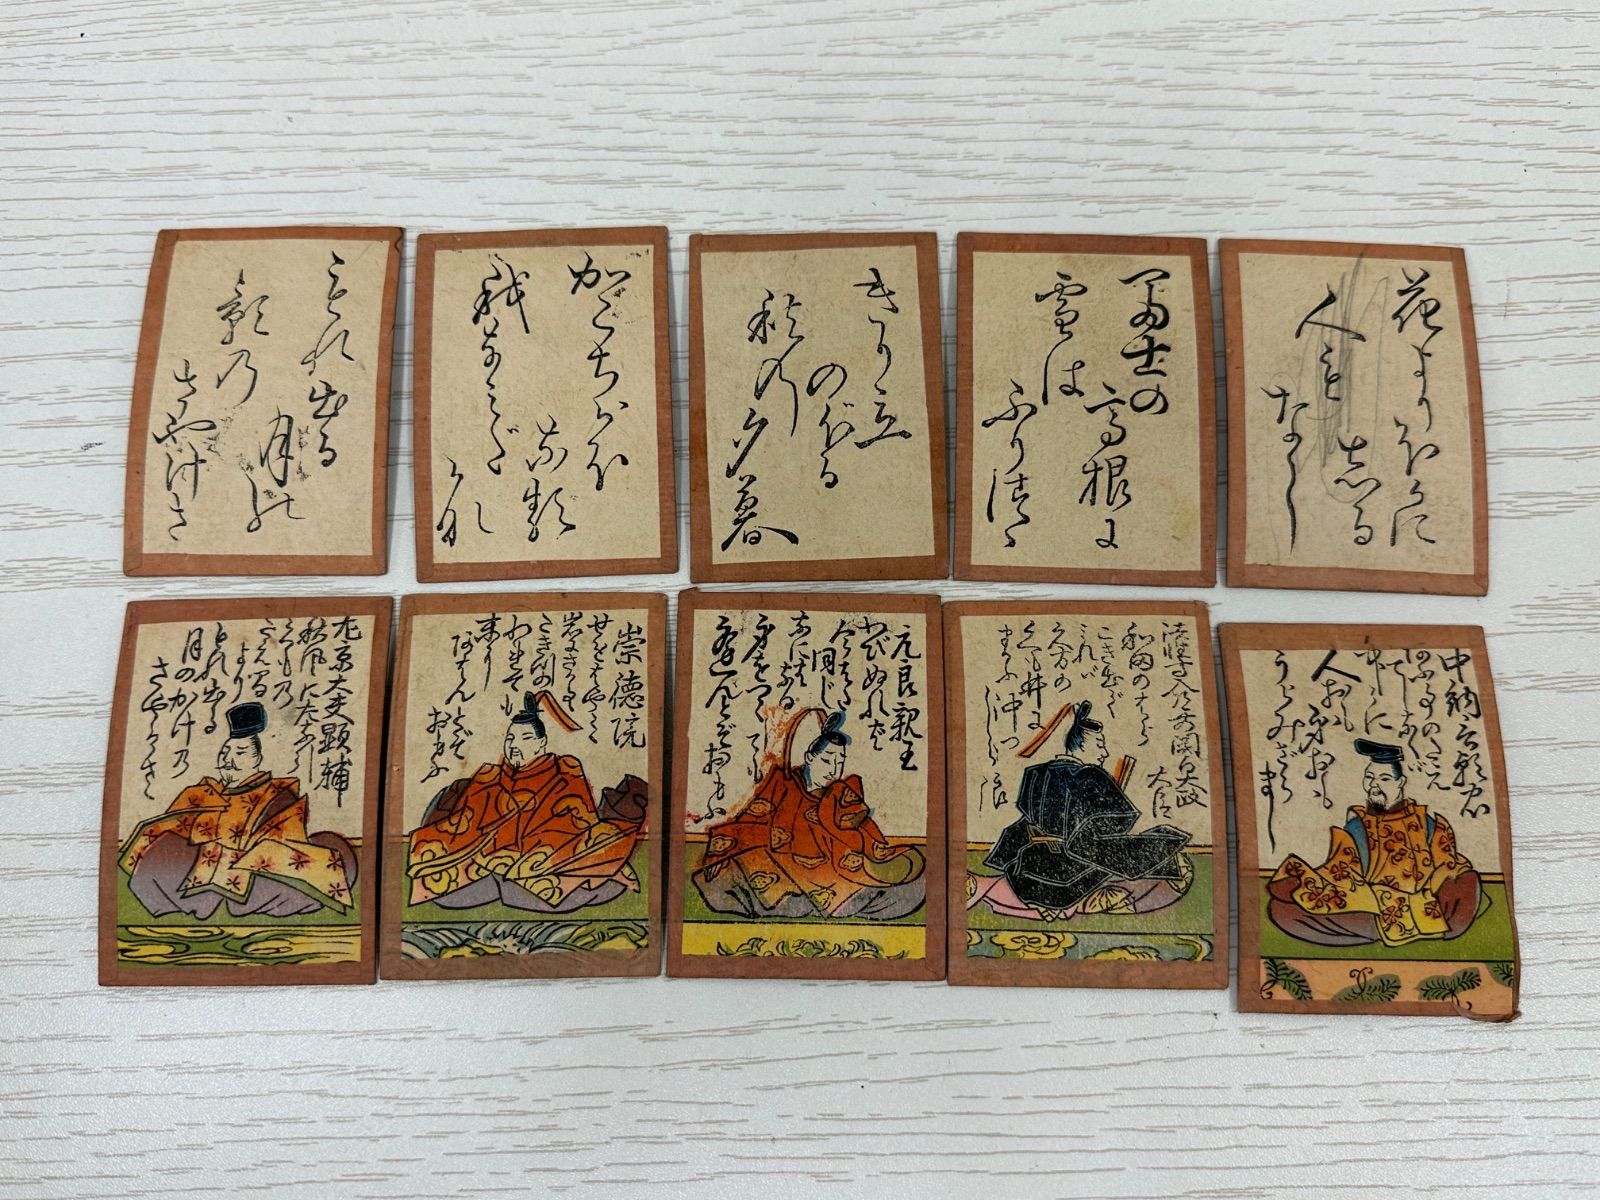 もれ出る
月の
影乃
さやけさ
かこちかほ
なる
我なみだ
かな
きり立
のぼる
秋の
夕暮
富士の
高根に
雪は
ふりつゝ
花よりほかに
志る
人も
なし
左京大夫顕輔
秋風にたなびく
くも乃
たえ間
より
もれ出る
月のかけ乃
さやけさ
崇徳院
せをはやみ
岩にせかるゝ
たき川の
われても
末に
あはんとぞ
おもふ
元良親王
わびぬれば
今はた
同じ
なにはなる
身をつくしても
逢はんとぞおもふ
法性寺入道前関白太政
大臣
和田のはら
こぎ出て
みれば
久方の
くも井に
まがふ沖つ
しら浪
中納言朝忠
逢ふことのたえ
てしなくば
中々に
人をも身をも
うらみざら
まし